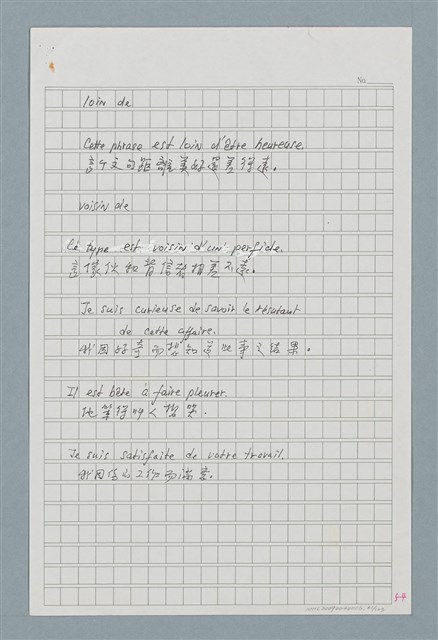 No.
loin de
Cette phrase est loin d'être heureuse.
這個文句距離美好還差得遠。
voisin de
Ce type est voisin d'un perfide.
這傢伙和背信者相差不遠。
Je suis curieuse de savoir le résutant
de cette affaire.
我因好奇而想知道此事之結果。
Il est bête à faire pleurer.
他笨得叫人想哭。
Je suis satisfaite de votre travail.
我因你的工作而滿意。
3-4